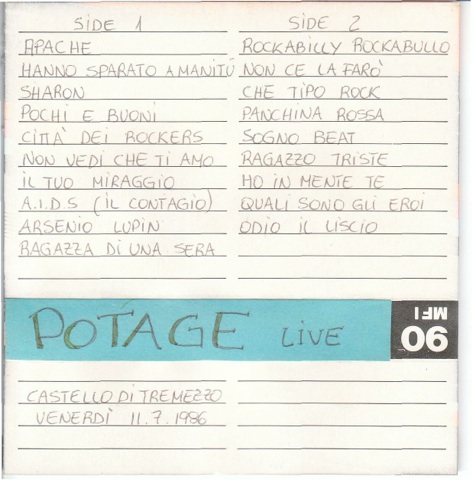 SIDE 1
APACHE
HANNO SPARATO A MANITÙ
SHARON
POCHI E BUONI
CITTÀ DEI ROCKERS
NON VEDI CHE TI AMO
IL TUO MIRAGGIO
A.I.D.S (IL CONTAGIO)
ARSENIO LUPIN
RAGAZZA DI UNA SERA
SIDE 2
ROCKABILLY ROCKABULLO
NON CE LA FARÒ
CHE TIPO ROCK
PANCHINA ROSSA
SOGNO BEAT
RAGAZZO TRISTE
HO IN MENTE TE
QUALI SONO GLI EROI
ODIO IL LISCIO
POTAGE LIVE
90
MFI
CASTELLO DI TREMEZZO
VENERDÌ 11.7.1986